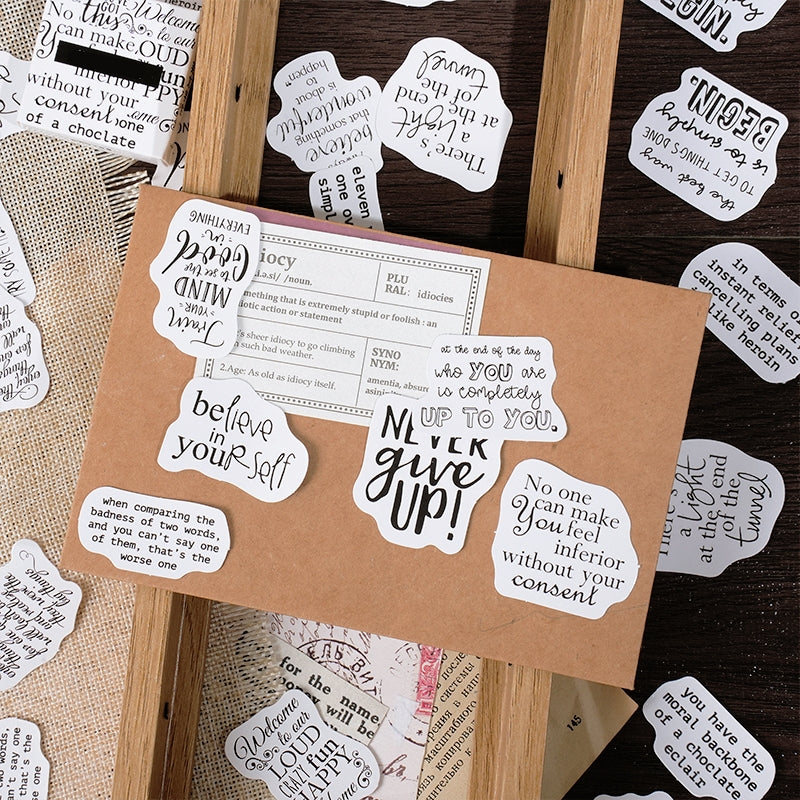 GO!
No this
can make
Welcome
to our
LOUD
fun
inferior
HAPPY
without your
consent
one
of a choclate
happen"
is to about
wonderful
that something
believe
There's
a light
at the end
of the
tunnel
eleven
one ov
simpl
BEGIN.
the best way
TO GET THINGS DONE
is to simply
BEGIN.
in terms of
instant relief
cancelling plans
is like heroin
Train
YOUR
MIND
to see the
GOOD
in
EVERYTHING
iocy
/noun.
PLU
RAL:
idiocies
mething that is extremely stupid or foolish : an
iotic action or statement
's sheer idiocy to go climbing
such bad weather.
2.Age: As old as idiocy itself.
SYNO
NYM:
amentia, absurd
asini
at the end of the day
who YOU are
is completely
UP TO YOU.
believe
in
yourself
NEVER
give
UP!
when comparing the
badness of two words,
and you can't say one
of them, that's the
worse one
No one
can make
You feel
inferior
without your
consent
There's
a light
at the end
of the
tunnel
for the name
will be
ЕЛЬ ВИТ
после
системы
масштабного
копирова
145
Welcome
to our
LOUD
CRAZY fun
HAPPY
ome
you have the
moral backbone
of a choclate
eclair
o words,
say one
t's the
one